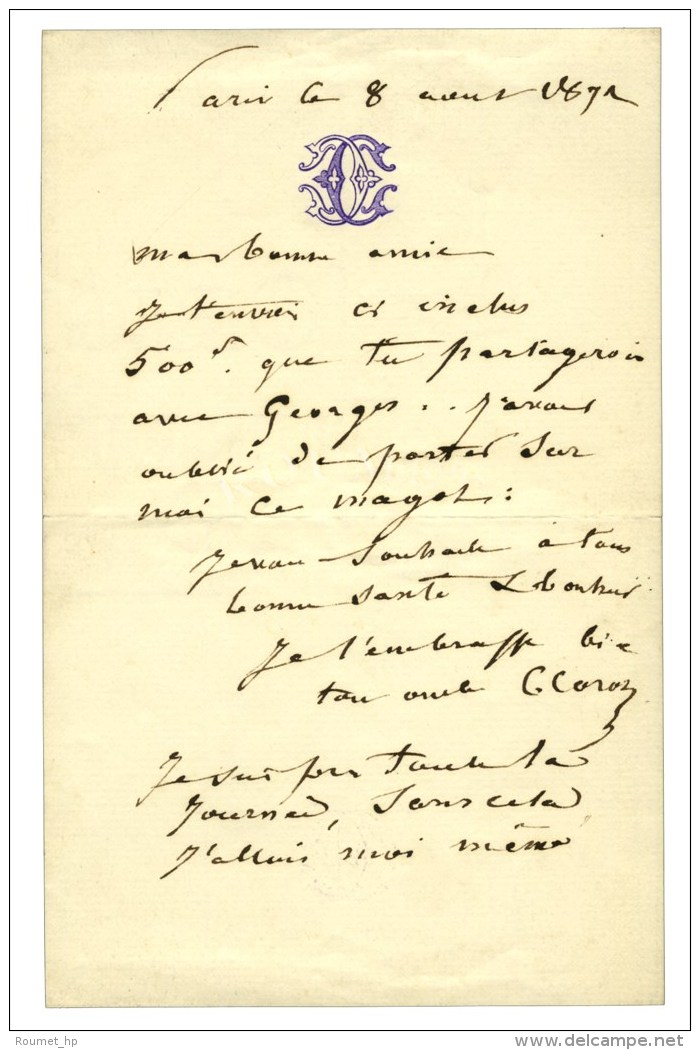 Paris le 8 aout 187
CC
ma bonne amie
Je t'envoi ci inclus
500f. que tu partagerois
avec Georges.. J'avais
oublié de porter sur
moi ce magot:
Je vous souhaite à tous
bonne santé & bonheur
Je t'embrasse bien
ton oncle C. Corot
Je suis pris toute la
Journée, sans cela
J'allais moi même
Roumet_hp
www.delcampe.net